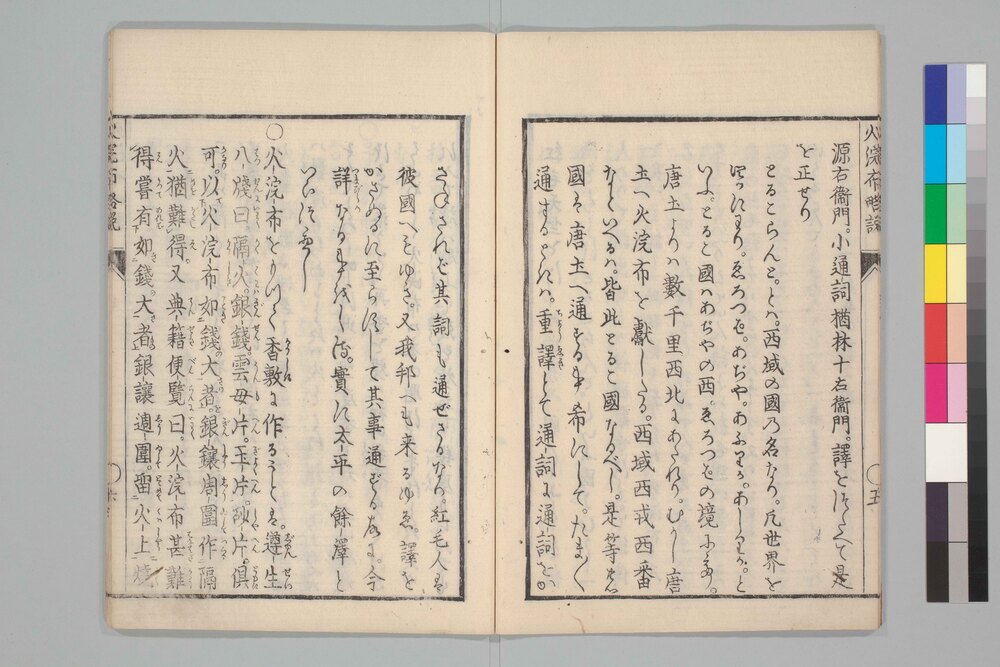 源右衛門。小通詞楢林十右衛門。譯をつたへて是
を正せり
とるこらんと。とハ。西域の國乃名なり。凡世界を
四つにわり。ゑろつぱ。あぢや。あふりか。あめりか。と
いふ。とるこ國ハあぢやの西。ゑろつぱの境にある。
唐土よりハ數千里西北にあたれり。むかし唐
土へ火浣布を獻したる。西域西戎西番
なといへるハ。皆此とるこ國なるべし。是等の
國々唐土へ通る事希にして。たま〳〵
通するときハ。重譯とて通詞に通詞をか
さねされど其詞も通ぜざるなり。紅毛人は
彼國へもゆき。又我邦へも来るゆゑ。譯を
かさぬるに至らずして其事通ずる故に。今
詳なりすべし。實に太平の餘澤と
いふべし
○火浣布をとりいて香敷に作ることは遵生
八牋曰。隔火。銀錢。雲母片。玉片。砂片。俱
可。以火浣布如錢大者。銀鑲周圍作隔
火猶難得。又典籍便覽曰。火浣布甚難
得嘗有如錢。大者銀讓週圍。畱火上燒
火浣布略説
五
火浣布略説
六